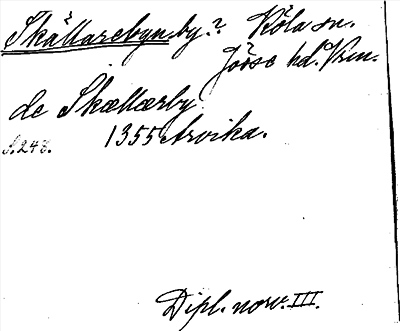 Skållarebyn. by.? Köla sn.
Jösse hd. Vrm.
de Skællærby
S. 248. 1355 Arvika.
Dipl. norv. III.